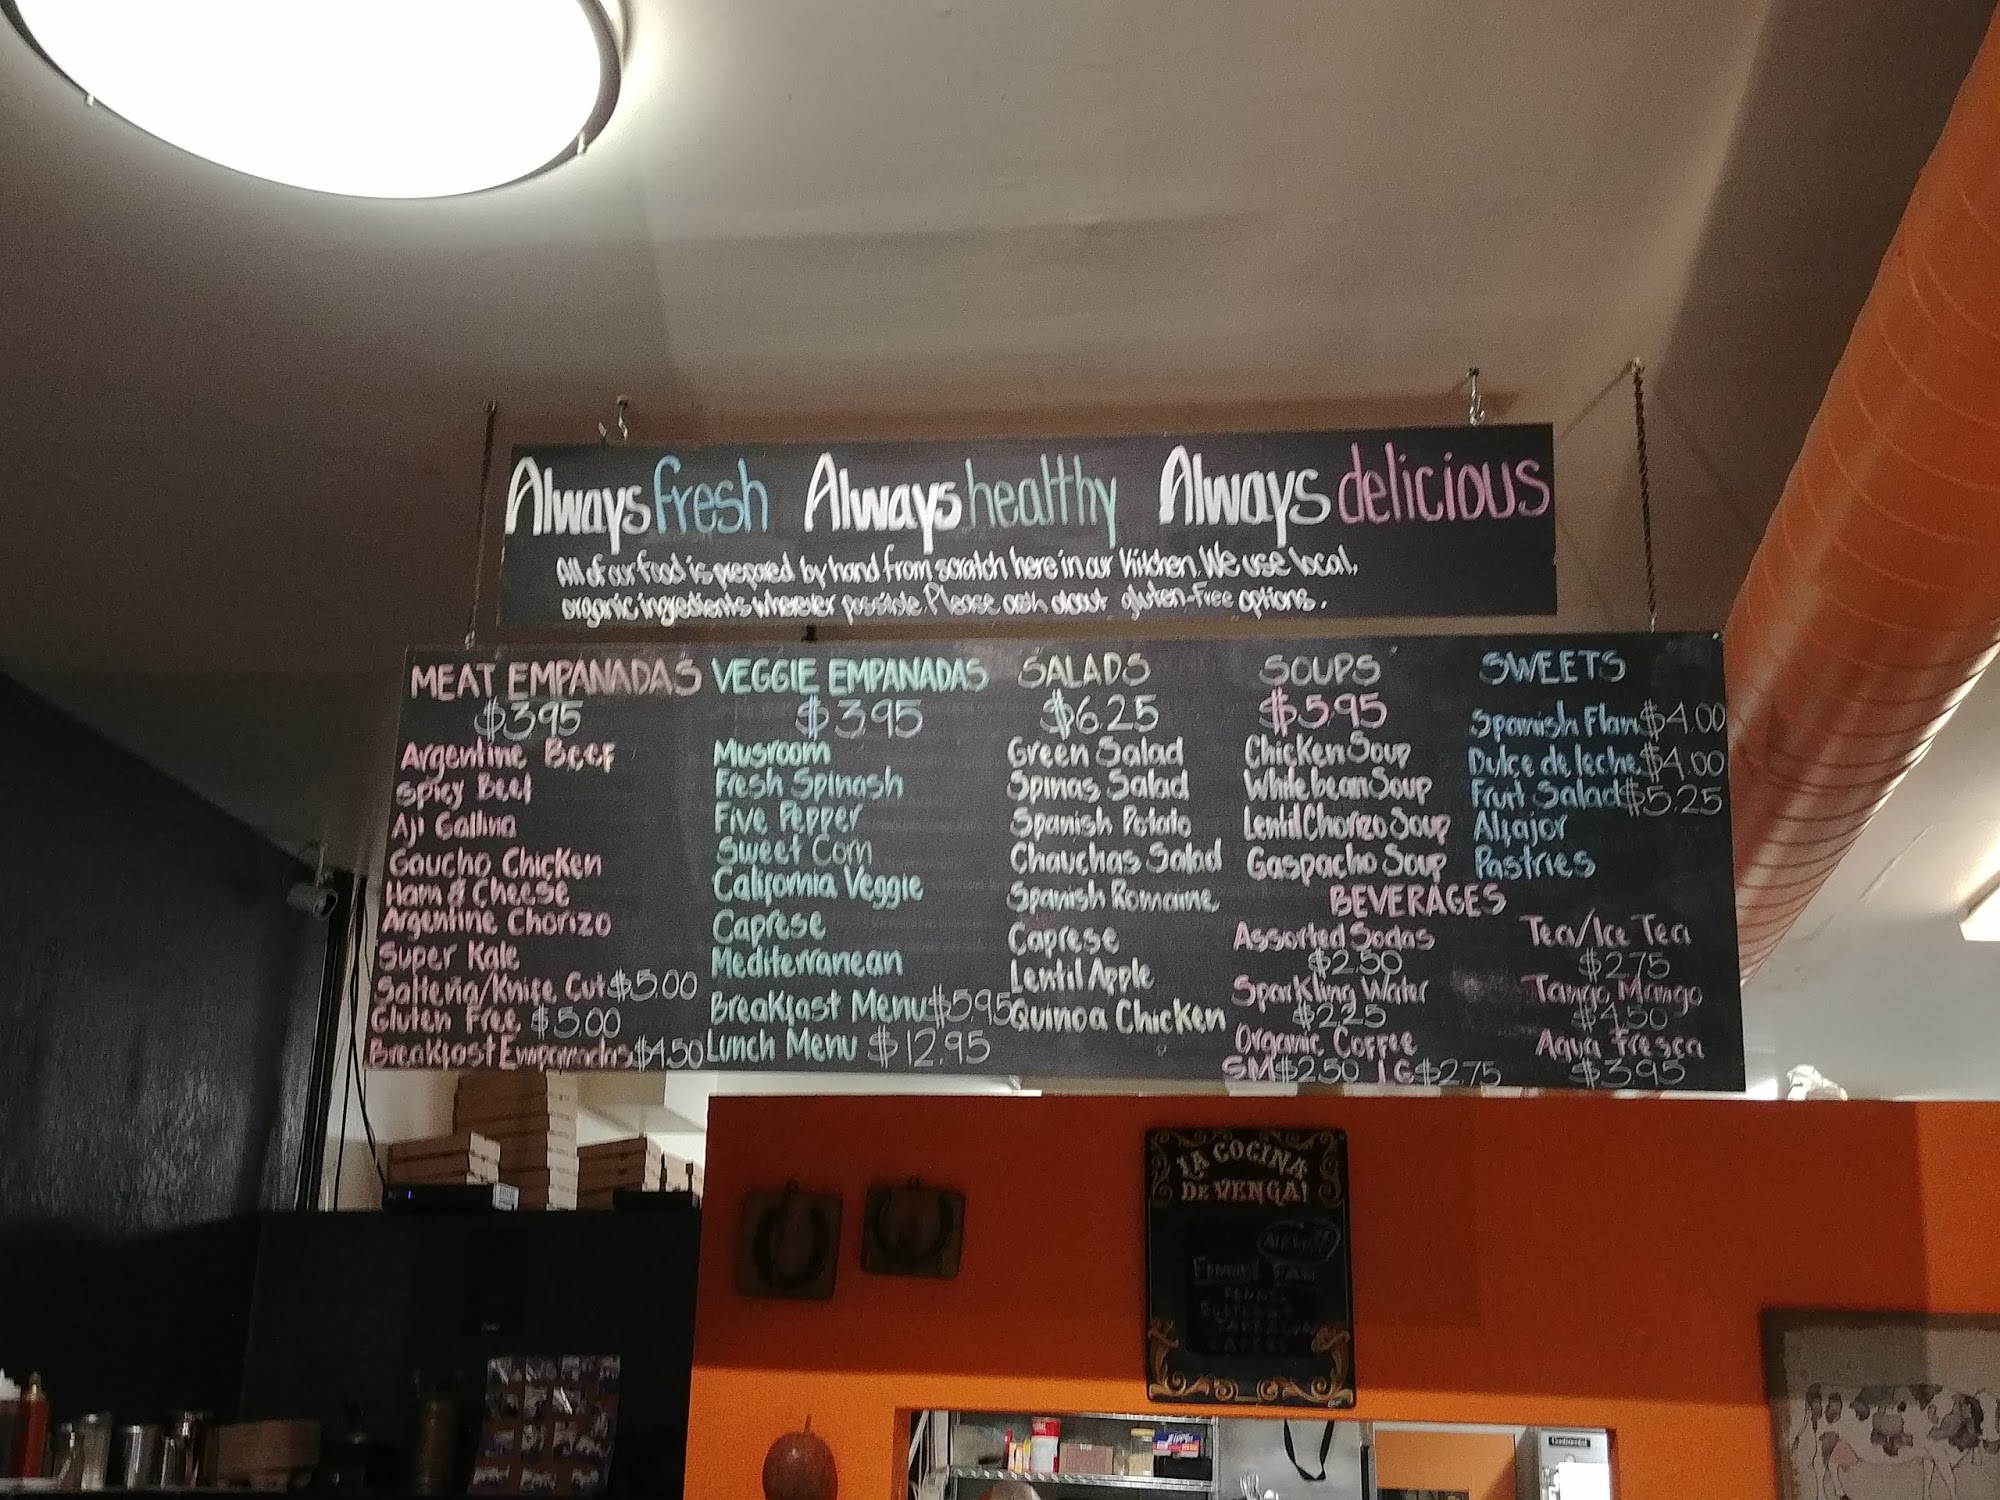 Always fresh Always healthy Always delicious
All of our food is prepared by hand from scratch here in our Kitchen. We use local,
organic ingredients wherever possible. Please ask about gluten-free options.
MEAT EMPANADAS
$3.95
Argentine Beef
Spicy Beef
Aji Gallina
Gaucho Chicken
Ham & Cheese
Argentine Chorizo
Super Kale
Salteña/Knise Cut $5.00
Gluten Free $5.00
Breakfast Empanadas $4.50
VEGGIE EMPANADAS
$3.95
Musroom
Fresh Spinash
Five Pepper
Sweet Corn
California Veggie
Caprese
Mediterranean
Breakfast Menu $5.95
Lunch Menu $12.95
SALADS
$6.25
Green Salad
Spinas Salad
Spanish Potato
Chauchas Salad
Spanish Romaine
Caprese
Lentil Apple
Quinoa Chicken
SOUPS
$5.95
Chicken Soup
White bean Soup
Lentil Chorizo Soup
Gaspacho Soup
SWEETS
Spanish Flan $4.00
Dulce de leche $4.00
Fruit Salad $5.25
Alfajor
Pastries
BEVERAGES
Assorted Sodas
$2.50
Sparkling Water
$2.25
Organic Coffee
SM $2.50 LG $2.75
Tea/Ice Tea
$2.75
Tango Mango
$4.50
Aqua Fresca
$3.95
LA COCINA
DE VENGA!